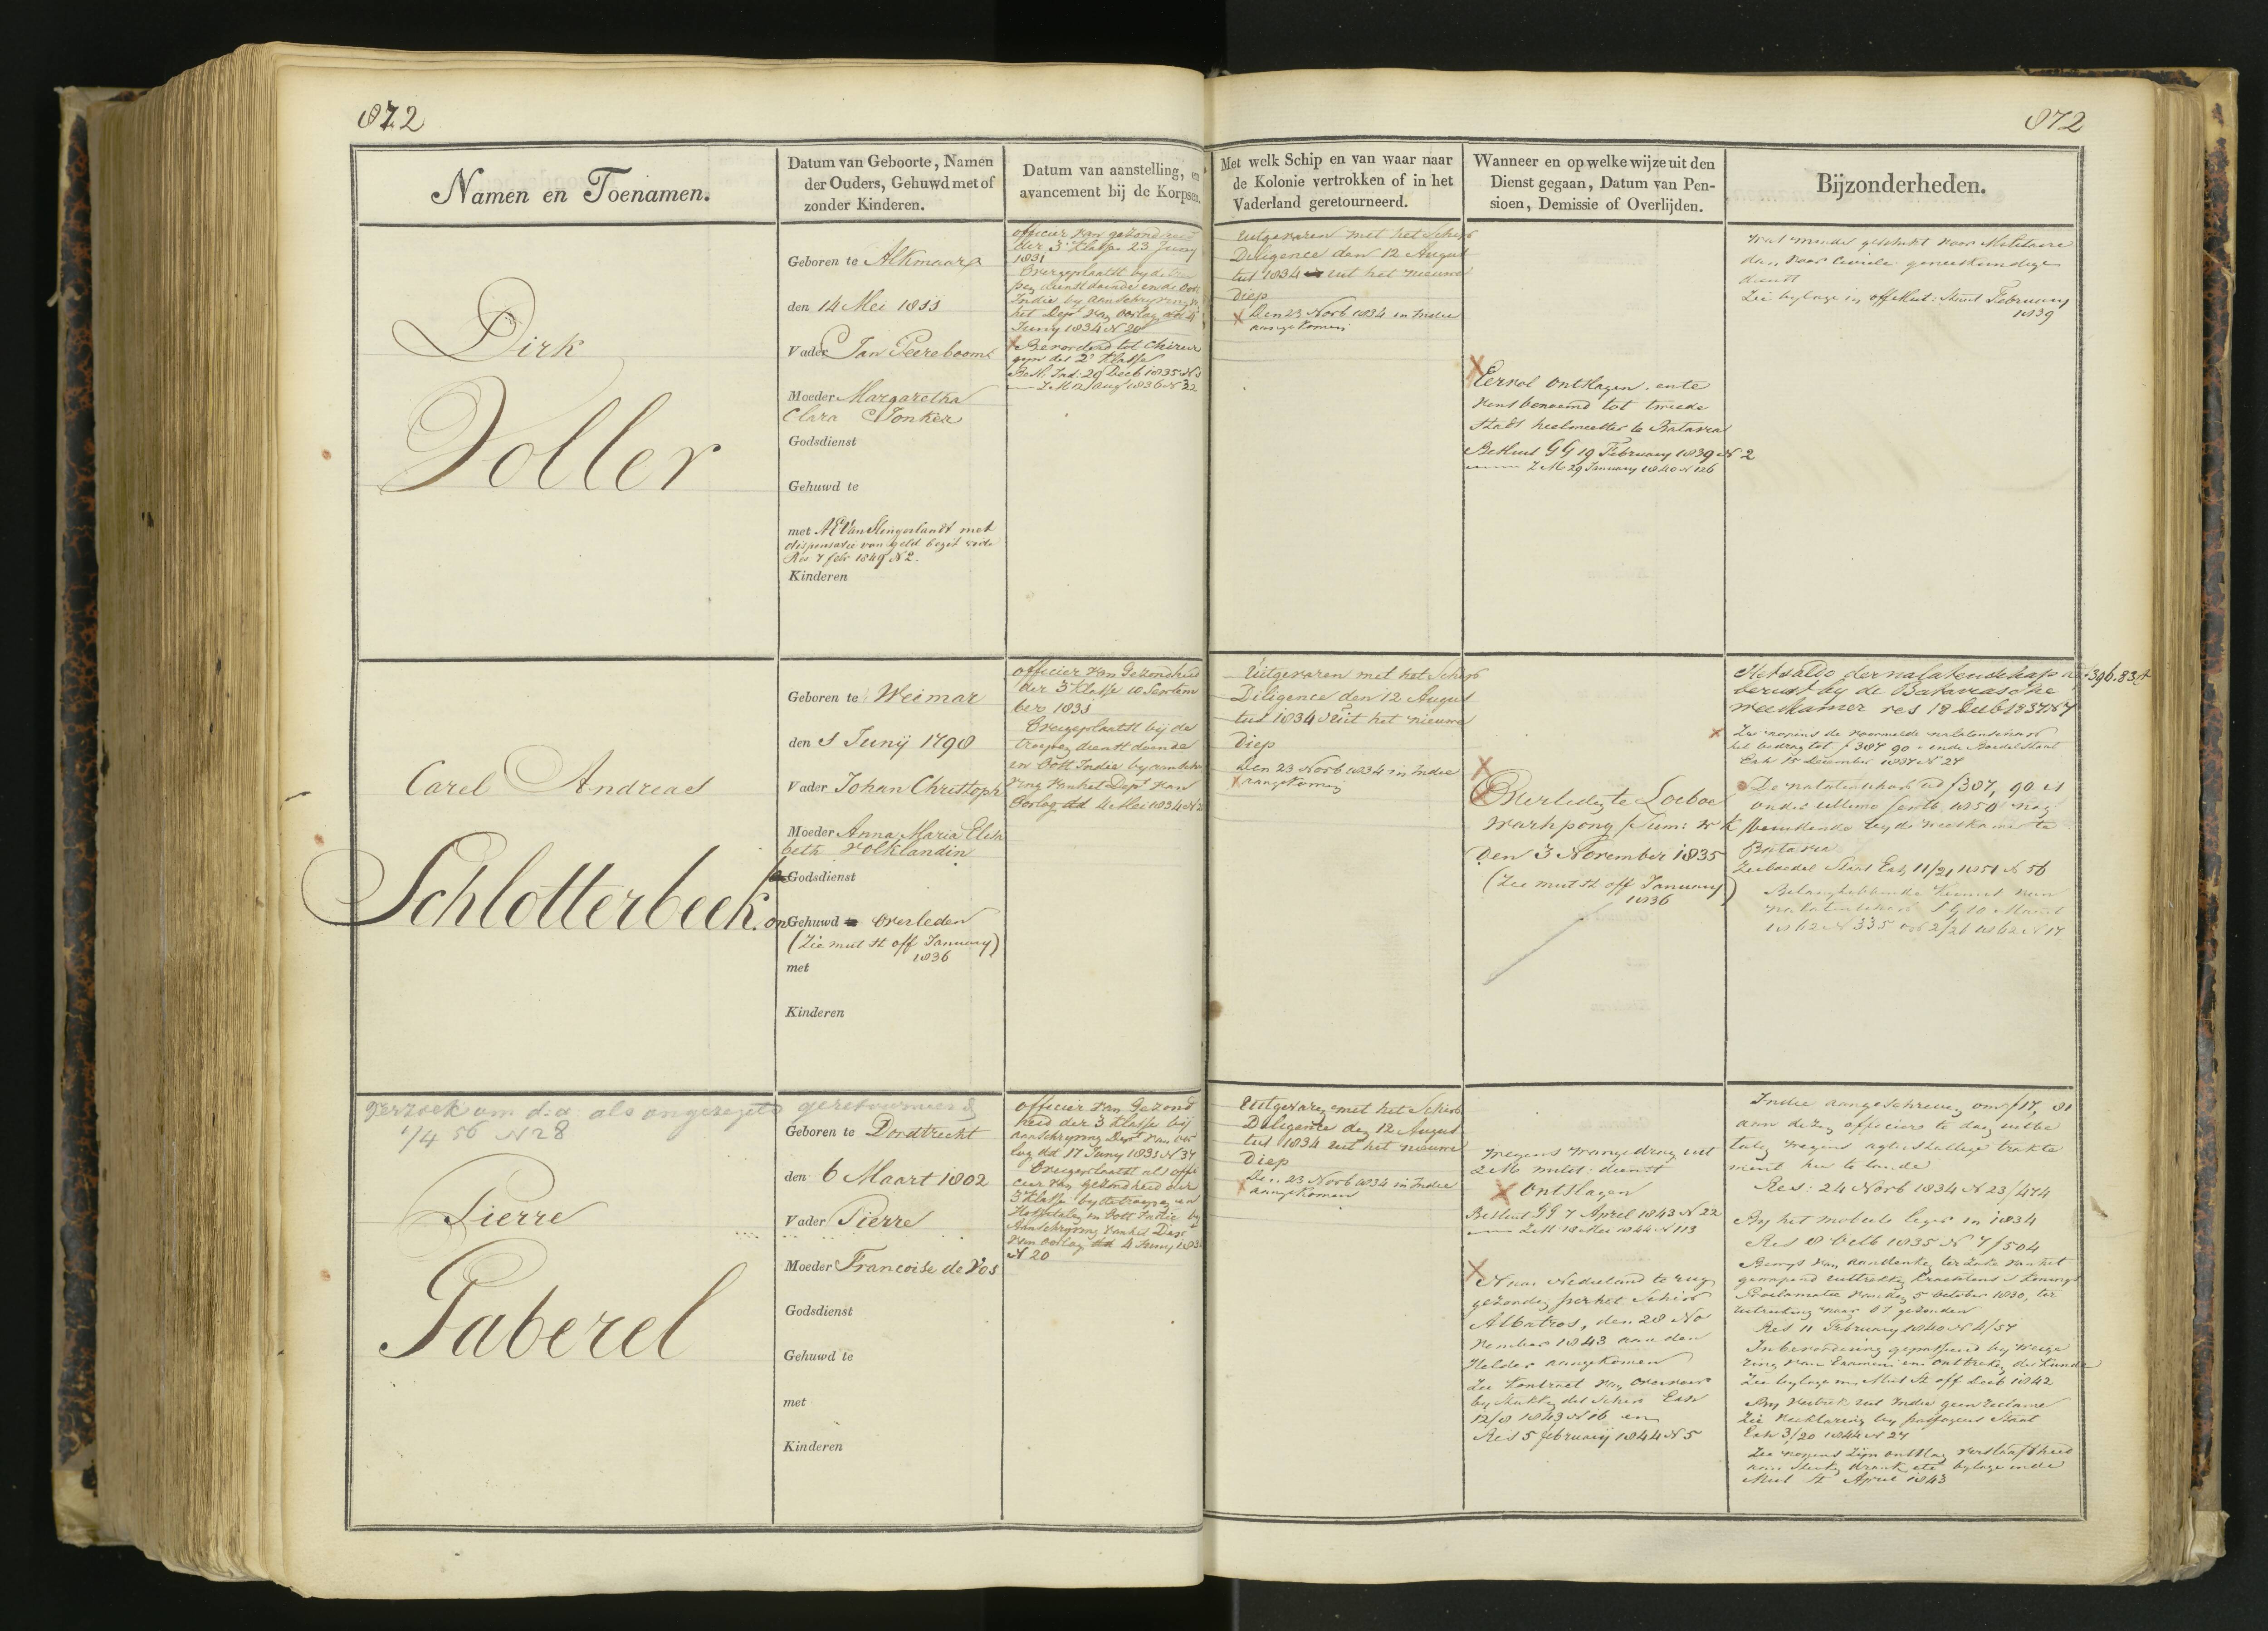 872
872
Namen en Toenamen.
Datum van Geboorte, Namen
der Ouders, Gehuwd met of
zonder Kinderen.
Datum van aanstelling, en
avancement bij de Korpsen.
Met welk Schip en van waar naar
de Kolonie vertrokken of in het
Vaderland geretourneerd.
Wanneer en op welke wijze uit den
Dienst gegaan, Datum van Pen-
sioen, Demissie of Overlijden.
Bijzonderheden.
Dirk
Voller
Geboren te Alkmaar
den 14 Mei 1811
Vader Jan Peereboom
Moeder Margaretha
Clara Jonker
Godsdienst
Gehuwd te
met Van Slingerlandt met
dispensatie van geld bezit vide
Res 7 feb 1849 N 2.
Kinderen
officier van gezondheid
der 3e Klasse 23 Juny
1831
Overgeplaatst by de trou
pen dienstdoende in de Oost
Indie by aanschryving v
het Dept van Oorlog dd 4
Juny 1834 N 20
Bevorderd tot Chirur
gyn der 2e Klasse
Besl. Ind: 20 Decb 1835 N
Z M 12 Aug 1836 N 22
Uitgevaren met het Schip
Diligence den 12 Augus
tus 1834 uit het nieuwe
diep
Den 23 Novb 1834 in Indie
aangekomen
Eervol ontslagen en te
vens benoemd tot tweede
Stads heelmeester te Batavia
Besluit GG 19 February 1839 N 2
Z M 29 January 1840 N 126
Wat minder geschikt voor Militaire
dan voor Civiele geneeskundige
dienst
Zie bylage in off Mut: Staat February
1839
Carel Andreas
Schlotterbeek.
Geboren te Weimar
den 1 Junij 1790
Vader Johan Christoph
Moeder Anna Maria Elisa
beth Volklandin
Godsdienst
on Gehuwd overleden
(Zie mut st off January)
1836
met
Kinderen
officier van Gezondheid
der 3e Klasse 10 Septem
ber 1831
Overgeplaatst bij de
troepen dienst doende
in Oost Indie by aanschry
ving van het Dept van
Oorlog dd 4 Mei 1834 N
Uitgevaren met het Schip
Diligence den 12 Augus
tus 1834 uit het nieuwe
diep
den 23 Novb 1834 in Indie
aangekomen
Overleden te Loeboe
(Den 3 November 1835
(Zie mut st off January)
1836
Het saldo der nalatenschap ad f 396.83
berust by de Bataviasche
weeskamer res 18 1837 N 7
Zie nopens de voormelde nalatenschap
het bedrag tot f 387 90 in de Boedelstaat
Exh 15 December 1837 N 27
De nalatenschap ad f 387, 90 is
onder ultimo Septb 1850 nog
berustende by de weeskamer te
Batavia
Zie boedel Staat Exh 11/21 1851 N 56
Verzoek om d.a. als ongezegeld geretourneerd
1/4 56 N 28
Pierre
Paberel
Geboren te Dordtrecht
den 6 Maart 1802
Vader Pierre
Moeder Francoise de Vos
Godsdienst
Gehuwd te
met
Kinderen
officier van Gezond
heid der 3 Klasse bij
aanschryving Dept van Oor
log dd 17 Juny 1831 N 37
Overgeplaatst als offi
cier van gezondheid der
3 Klasse by de troepen en
Hospitalen in Oost Indie by
Aanschryving van het Dept
van Oorlog dd 4 Juny 183
N 20
Uitgevaren met het Schip
Diligence den 12 Augus
tus 1834 uit het nieuwe
Diep
Den 23 Novb 1834 in Indie
aangekomen
Wegens wangedrag uit
Z M milit: dienst
ontslagen
Besluit GG 7 April 1843 N 22
Z M 18 Mei 1844 N 113
Naar Nederland te rug
gezonden per het Schip
Albatros, den 28 No
vember 1843 aan den
Helder aangekomen
Zie Contract van overvoer
by Stukken des Schips Exh
12/8 1843 N 16 en
Res 5 february 1844 N 5
Indie aangeschreven om f 17, 81
aan dezen officier te doen uitbe
talen wegens agterstallige trakte
ment hier te lande
Res: 24 Novb 1834 N 23/474
By het mobiele leger in 1834
Res 8 Octb 1835 N 7/504
Bewys van aandenken ter zake van het
gewapend uittrekken krachtens s Konings
Proclamatie van den 5 October 1830, ter
uitreiking naar OI gezonden
Res 11 February 1840 N 4/57
In bevordering gepasseerd by weige
ring van Examen
Zie bylage in Mut St off Decb 1842
By vertrek uit Indie geen reclame
Zie verklaring by passagiers Staat
Exh 3/20 1844 N 27
Zie nopens zyn ontslag verslaafdheid
aan sterken drank etc bylage in de
Mut St April 1843